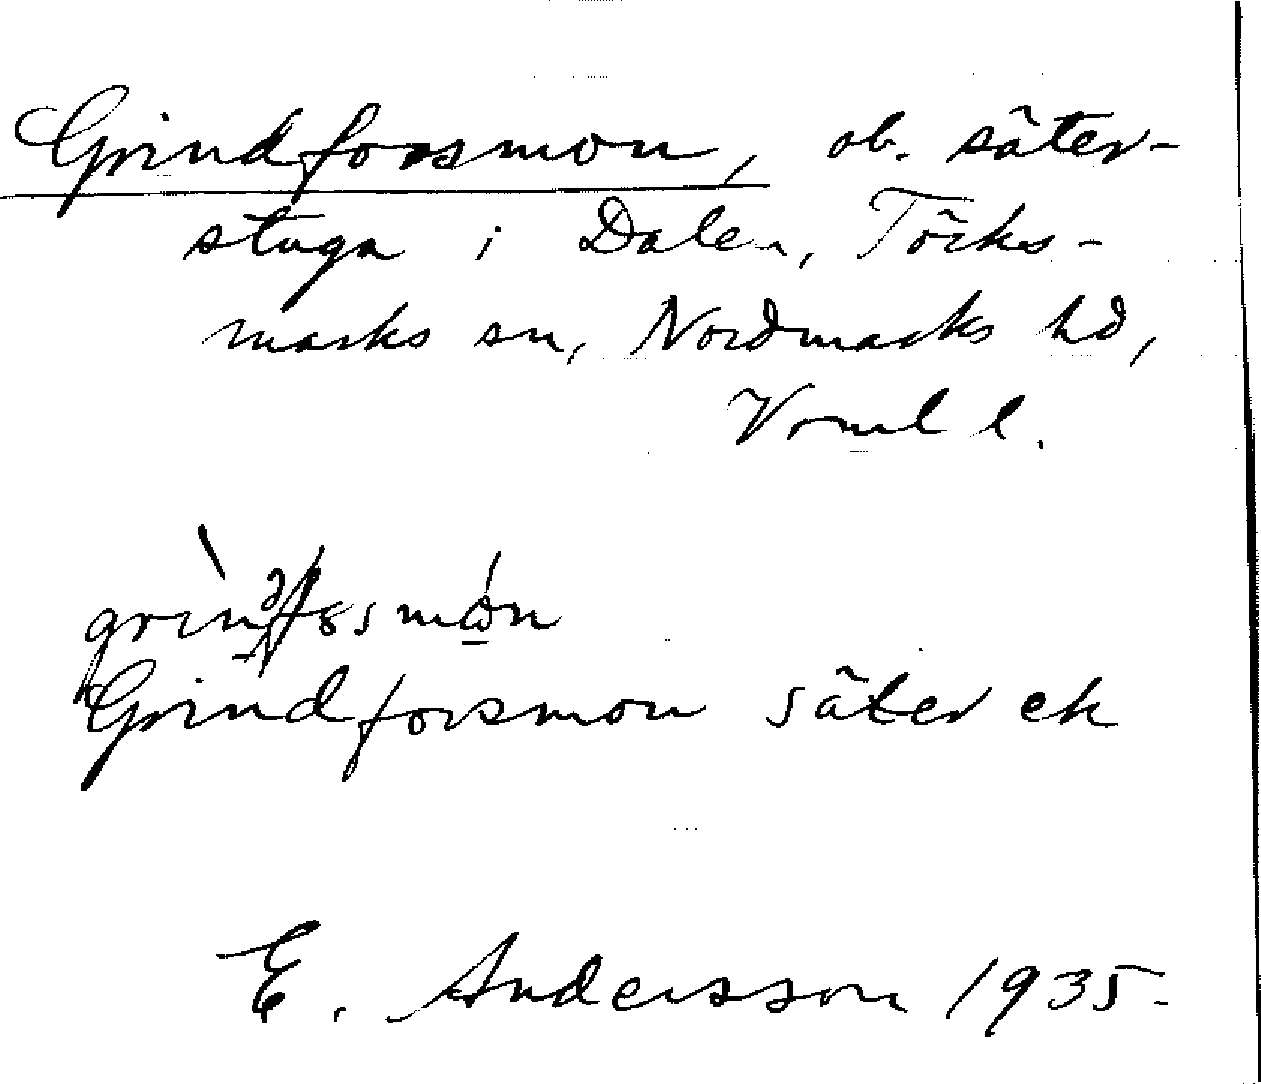 Grindforsmon, ob. säter-
stuga i Dalen, Töcks-
marks sn, Nordmarks hd,
Vrml l.
Grindforsmon säter ek
E. Andersson 1935